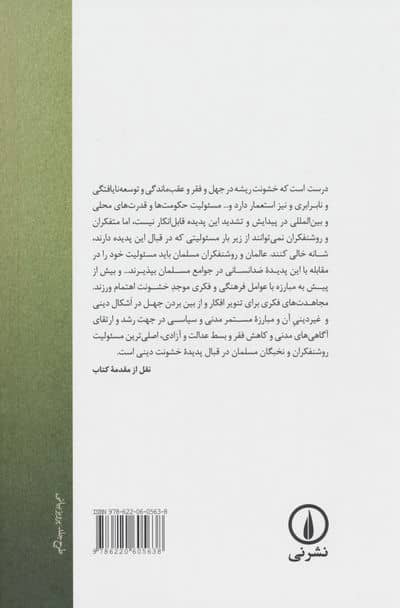 درست است که خشونت ریشه در جهل و فقر و عقب‌ماندگی و توسعه‌نایافتگی
و نابرابری و نیز استعمار دارد و... مسئولیت حکومت‌ها و قدرت‌های محلی
و بین‌المللی در پیدایش و تشدید این پدیده قابل‌انکار نیست، اما متفکران
و روشنفکران نمی‌توانند از زیر بار مسئولیتی که در قبال این پدیده دارند،
شانه خالی کنند. عالمان و روشنفکران مسلمان باید مسئولیت خود را در
مقابله با این پدیدهٔ ضدانسانی در جوامع مسلمان بپذیرند... و بیش از
پیش به مبارزه با عوامل فرهنگی و فکری موجدِ خشونت اهتمام ورزند.
مجاهدت‌های فکری برای تنویر افکار و از بین بردن جهل در اشکال دینی
و غیردینیِ آن و مبارزهٔ مستمر مدنی و سیاسی در جهت رشد و ارتقای
آگاهی‌های مدنی و کاهش فقر و بسط عدالت و آزادی، اصلی‌ترین مسئولیت
روشنفکران و نخبگان مسلمان در قبال پدیدهٔ خشونت دینی است.
نقل از مقدمهٔ کتاب
طرح جلد: پرویز بیانی
ISBN 978-622-06-0563-8
9 786220 605638
نشرنی